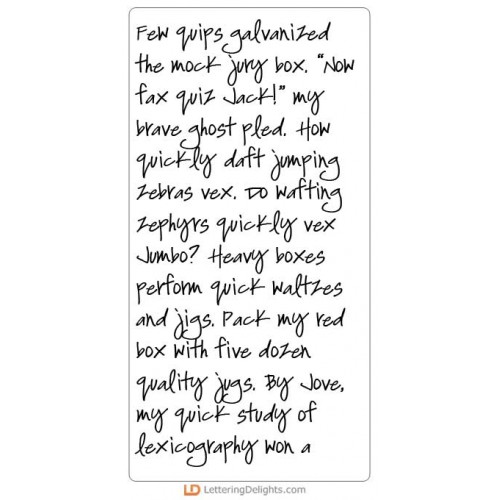 Few quips galvanized
the mock jury box. "Now
fax quiz Jack!" my
brave ghost pled. How
quickly daft jumping
zebras vex. Do wafting
zephyrs quickly vex
Jumbo? Heavy boxes
perform quick waltzes
and jigs. Pack my red
box with five dozen
quality jugs. By Jove,
my quick study of
lexicography won a
LD LetteringDelights.com